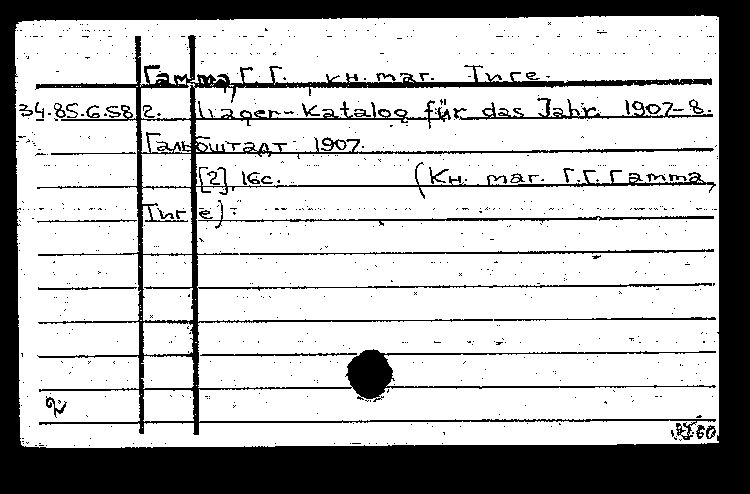 Гамма, Г. Г., кн. маг. Тиге.
34.85.6.582. Lager-Katalog für das Jahr 1907-8.
Гальбштадт, 1907.
[2], 16с. (Кн. маг. Г.Г. Гамма,
Тиге).